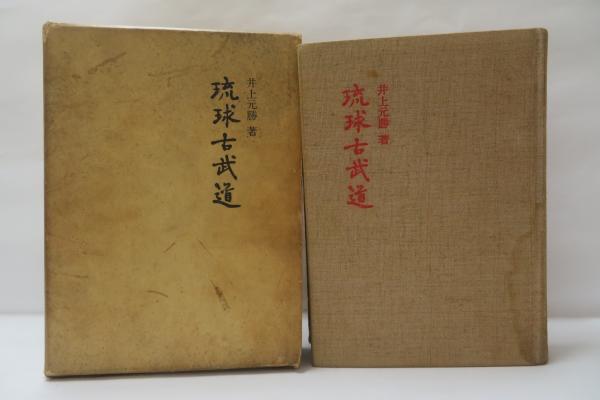 井上元勝 著
琉球古武道
井上元勝 著
琉球古武道